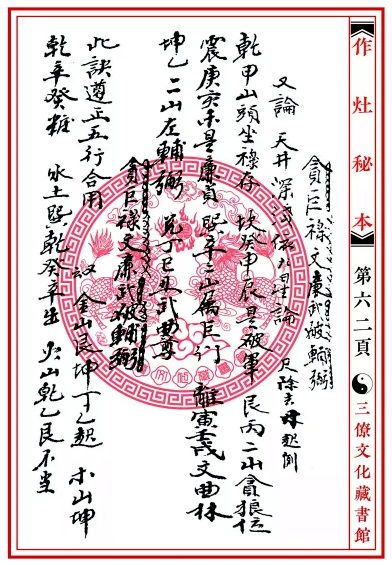 作灶秘本 第六二頁 三僚文化藏書館
貪巨祿文廉武破輔弼
又論 天井深淺依九星論 尺除去起例
乾甲山頭坐祿存 坎癸申辰是破軍 艮丙二山貪狼位
震庚亥未是廉貞 巽辛二山属巨行 離寅壬戌文曲林
坤乙二山左輔弼 兑丁巳丑武曲尊
貪巨祿文廉武破輔弼
此訣遵正五行合用 金山艮坤丁乙起 木山坤
乾辛癸 水土巽乾癸辛 火山乾乙艮不